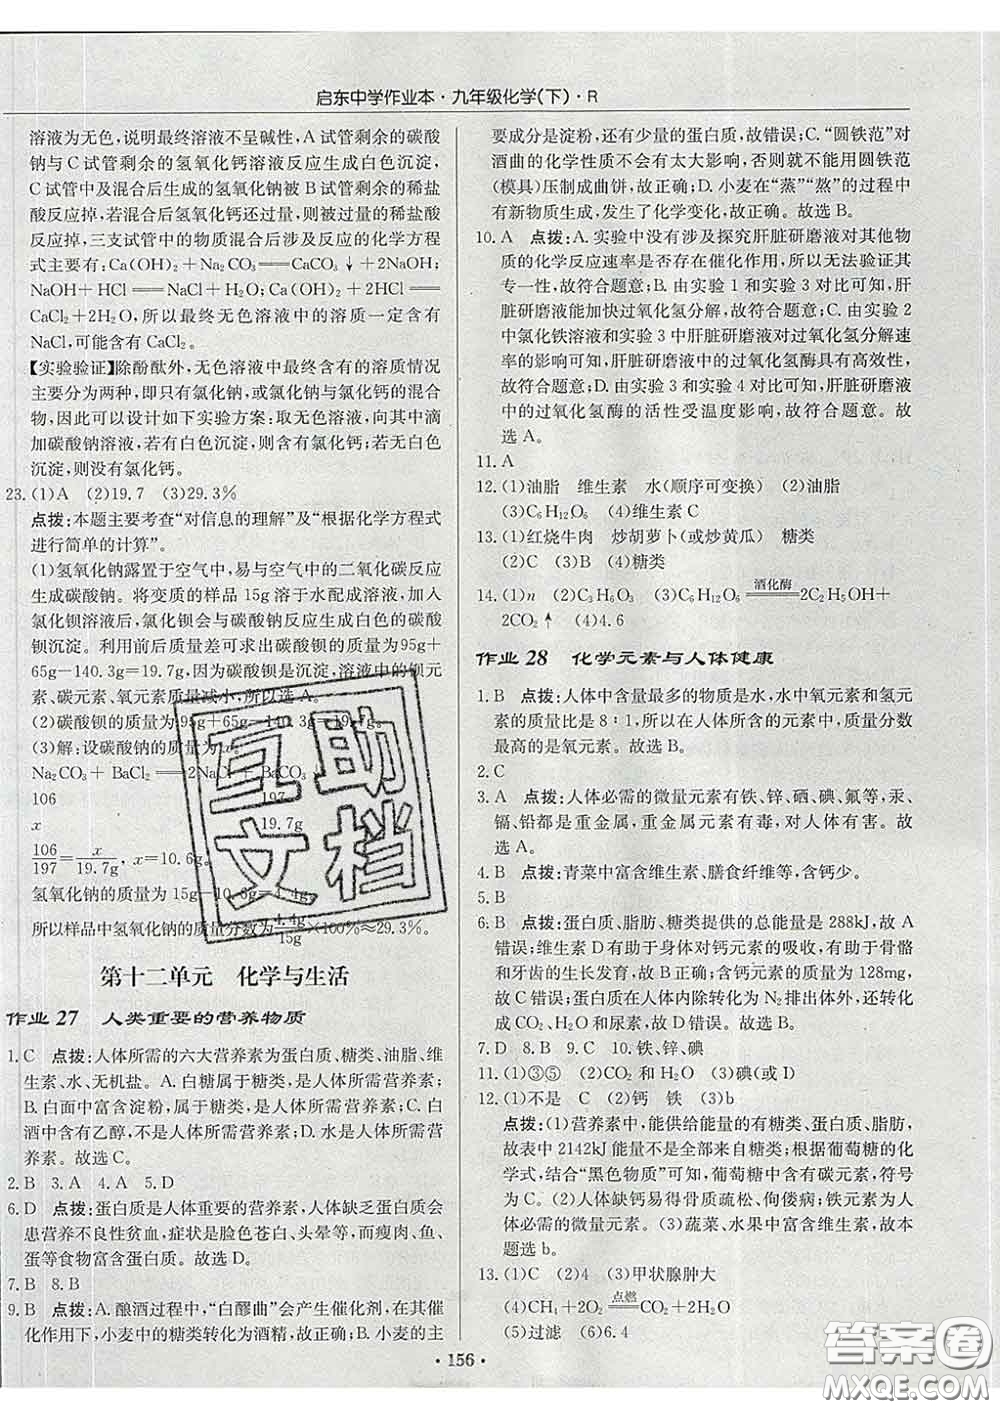 启东中学作业本·九年级化学(下)·R
溶液为无色，说明最终溶液不呈碱性，A 试管剩余的碳酸
钠与 C 试管剩余的氢氧化钙溶液反应生成白色沉淀，
C 试管中及混合后生成的氢氧化钠被 B 试管剩余的稀盐
酸反应掉，若氢氧化钙还过量，则被过量的稀盐酸
反应掉，三支试管中的物质混合后涉及反应的化学方程
式主要有：Ca(OH)₂ + Na₂CO₃══CaCO₃↓+2NaOH；
NaOH + HCl══NaCl + H₂O；Ca(OH)₂ + 2HCl══
CaCl₂+2H₂O，所以最终无色溶液中的溶质一定含有
NaCl，可能含有 CaCl₂。
【实验验证】除酚酞外，无色溶液中最终含有的溶质情况
主要分为两种，即只有氯化钠，或氯化钠与氯化钙的混合
物，因此可以设计如下实验方案：取无色溶液，向其中滴
加碳酸钠溶液，若有白色沉淀，则含有氯化钙；若无白色
沉淀，则没有氯化钙。
23. (1)A　(2)19.7　(3)29.3%
点拨：本题主要考查“对信息的理解”及“根据化学方程式
进行简单的计算”。
(1)氢氧化钠露置于空气中，易与空气中的二氧化碳反应
生成碳酸钠。将变质的样品 15g 溶于水配成溶液，加入
氯化钡溶液后，氯化钡会与碳酸钠反应生成碳酸
钡沉淀。利用前后质量差可求出碳酸钡的质量为95g+
65g-140.3g=19.7g，因为碳酸钡是沉淀，溶液中的钡元
素、碳元素、氧元素质量减小，所以选 A。
(2)碳酸钡的质量为 95g+65g-140.3g=19.7g。
(3)解：设碳酸钠的质量为
Na₂CO₃ + BaCl₂══2NaCl + BaCO₃↓
106　197
x　19.7g
106/197 = x/19.7g，x=10.6g。
氢氧化钠的质量为 15g-10.6g=4.4g
所以样品中氢氧化钠的质量分数为4.4g/15g×100%≈29.3%。
第十二单元　化学与生活
作业 27　人类重要的营养物质
1. C　点拨：人体所需的六大营养素为蛋白质、糖类、油脂、维
生素、水、无机盐。A. 白糖属于糖类，是人体所需营养素；
B. 白面中富含淀粉，属于糖类，是人体所需营养素；C. 白
酒中含有乙醇，不是人体所需营养素；D. 水是人体所需营
养素。故选 C。
2. B　3. A　4. A　5. D
6. D　点拨：蛋白质是人体重要的营养素，人体缺乏蛋白质会
患营养不良性贫血，症状是脸色苍白、头晕等，而瘦肉、鱼、
蛋等食物富含蛋白质。故选 D。
7. B　8. B
9. B　点拨：A. 酿酒过程中，“白醪曲”会产生催化剂，在其催
化作用下，小麦中的糖类变为酒精，故正确；B. 小麦的主
要成分是淀粉，还有少量的蛋白质，故错误；C. “圆铁范”对
酒曲的化学性质不会有太大影响，否则就不能用圆铁范
(模具)压制成曲饼，故正确；D. 小麦在“蒸”“熬”的过程中
有新物质生成，发生了化学变化，故正确。故选 B。
10. A　点拨：A. 实验中没有涉及探究肝脏研磨液对其他物
质的化学反应速率是否存在催化作用，所以无法验证其
专一性，故符合题意；B. 由实验 1 和实验 3 对比可知，肝
脏研磨液能加快过氧化氢分解，故符合题意；C. 由实验 2
中氯化铁溶液和实验 3 中肝脏研磨液对过氧化氢分解速
率的影响可知，肝脏研磨液中的过氧化氢酶具有高效性，
故符合题意；D. 由实验 3 和实验 4 对比可知，肝脏研磨液
中的过氧化氢酶的活性受温度影响，故符合题意。故
选 A。
11. A
12. (1)油脂　维生素　水(顺序可变换)　(2)油脂
(3)C₆H₁₂O₆　(4)维生素 C
13. (1)红烧牛肉　炒胡萝卜(或炒黄瓜)　糖类
(2)C　(3)B　(4)糖类
14. (1)n　(2)C₃H₆O₃　(3)C₆H₁₂O₆ ═酒化酶═ 2C₂H₅OH+
2CO₂↑　(4)4.6
作业 28　化学元素与人体健康
1. B　点拨：人体中含量最多的物质是水，水中氧元素和氢元
素的质量比是 8∶1，所以在人体所含的元素中，质量分数
最高的是氧元素。故选 B。
2. C
3. A　点拨：人体必需的微量元素有铁、锌、硒、碘、氟等，汞、
镉、铅都是重金属，重金属元素有毒，对人体有害。故
选 A。
4. B　点拨：青菜中富含维生素、膳食纤维等，含钙少。
5. B
6. B　点拨：蛋白质、脂肪、糖类提供的总能量是 288kJ，故 A
错误；维生素 D 有助于身体对钙元素的吸收，有助于骨骼
和牙齿的生长发育，故 B 正确；含钙元素的质量为 128mg，
故 C 错误；蛋白质在人体内除转化为 N₂ 排出体外，还转化
成 CO₂、H₂O 和尿素，故 D 错误。故选 B。
7. D　8. B　9. C　10. 铁、锌、碘
11. (1)③⑤　(2)CO₂ 和 H₂O　(3)碘(或 I)
12. (1)不是　C　(2)钙　铁　(3)b
点拨：(1)营养素中，能供给能量的有糖类、蛋白质、脂肪，
故表中 2142kJ 能量不是全部来自糖类；根据葡萄糖的化
学式，结合“黑色物质”可知，葡萄糖中含有碳元素，符号
为 C。(2)人体缺钙易得骨质疏松、佝偻病；铁元素为人
体必需的微量元素。(3)蔬菜、水果富含维生素，故本
题选 b。
13. (1)C　(2)4　(3)甲状腺肿大
(4)CH₄+2O₂ ═点燃═ CO₂+2H₂O
(5)过滤　(6)6.4
· 156 ·
互助
文档
答案圈
MXQE.COM